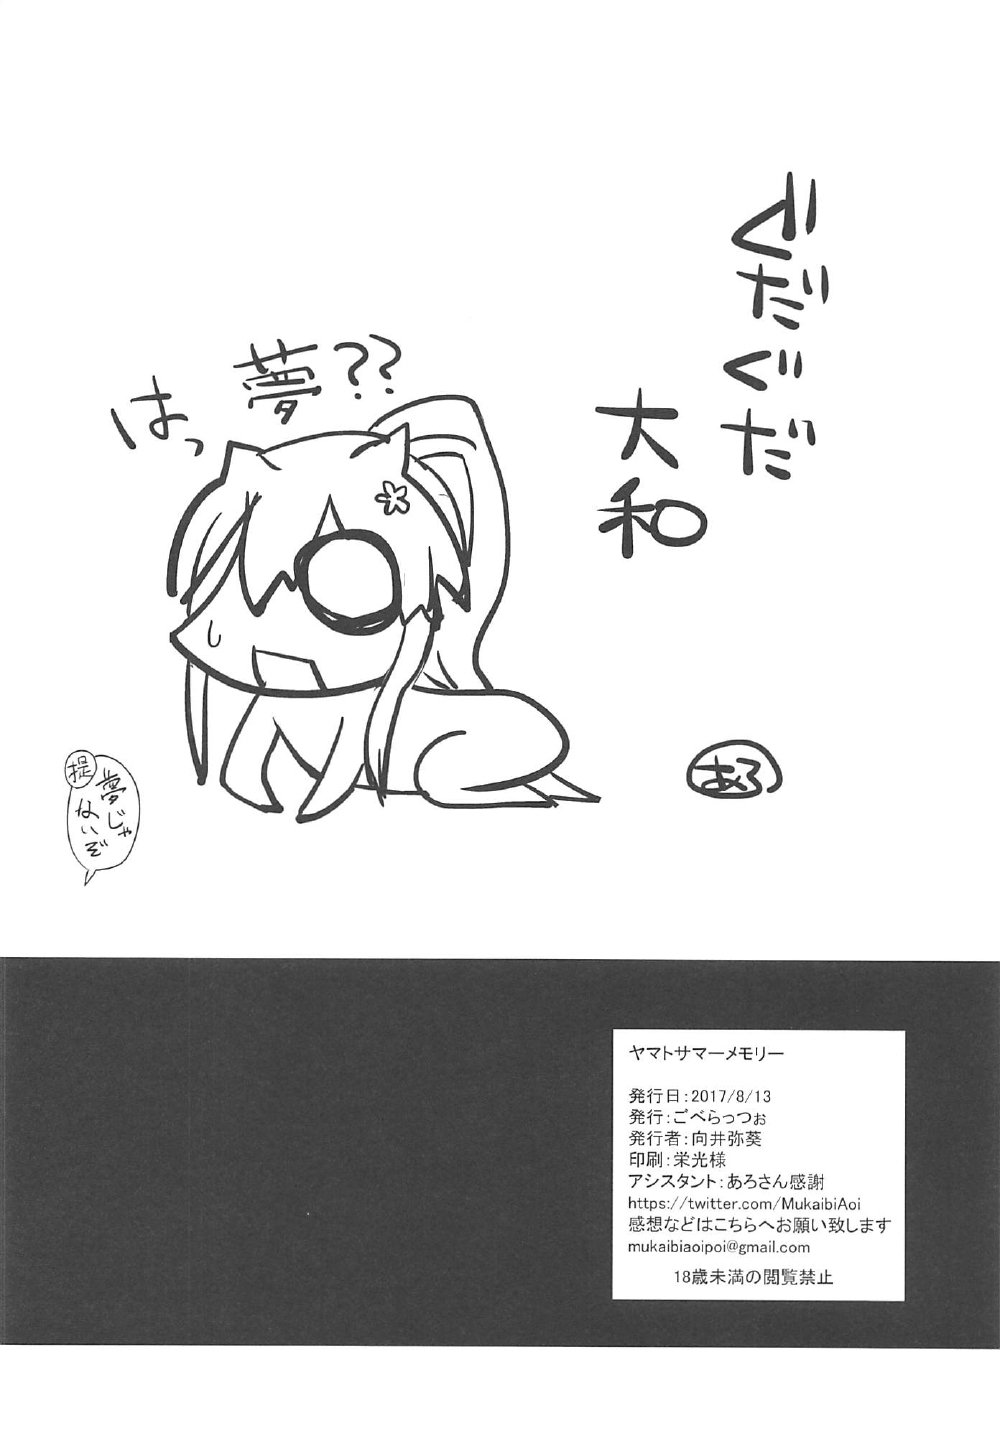 ぐだぐだ
大和
夢??
はっ
あろ
提
夢じゃ
ないぞ
ヤマトサマーメモリー
発行日:2017/8/13
発行:ごべらっつぉ
発行者:向井弥葵
印刷:栄光様
アシスタント:あろさん感謝
https://twitter.com/MukaibiAoi
感想などはこちらへお願い致します
mukaibiaoipoi@gmail.com
18歳未満の閲覧禁止